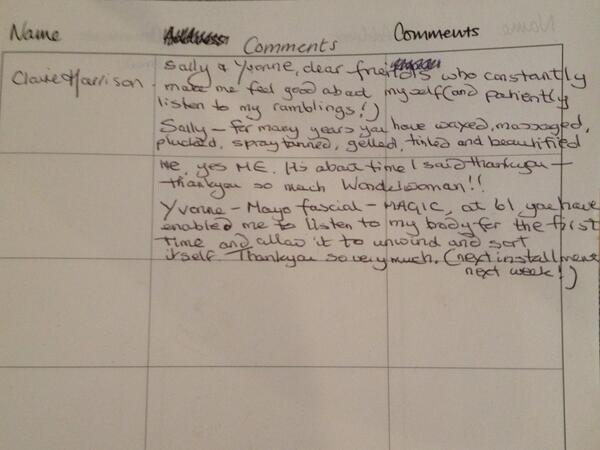 Name Comments Comments
Claire Harrison. Sally & Yvonne, dear friends who constantly
make me feel good about myself (and patiently
listen to my ramblings!)
Sally – for many years you have waxed, massaged,
plucked, spray tanned, gelled, tinted and beautified
me, yes ME. It's about time I said thankyou –
thankyou so much Wonderwoman!!
Yvonne – Mayo fascial – MAGIC, at 61 you have
enabled me to listen to my body for the first
time and allow it to unwind and sort
itself. Thankyou so very much. (next installment
next week!)